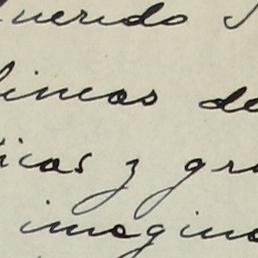 querido
lineas de
icas y gra
imagina